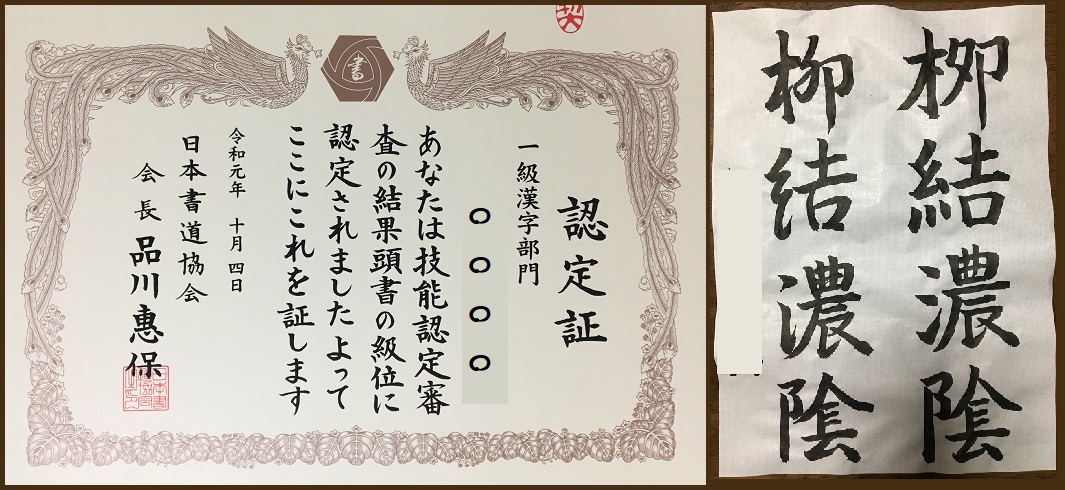 書
認定証
一級漢字部門
○○○○
あなたは技能認定審
査の結果頭書の級位に
認定されましたよって
ここにこれを証します
令和元年 十月 四日
日本書道協会
会長 品川惠保
柳結濃陰
柳結濃陰